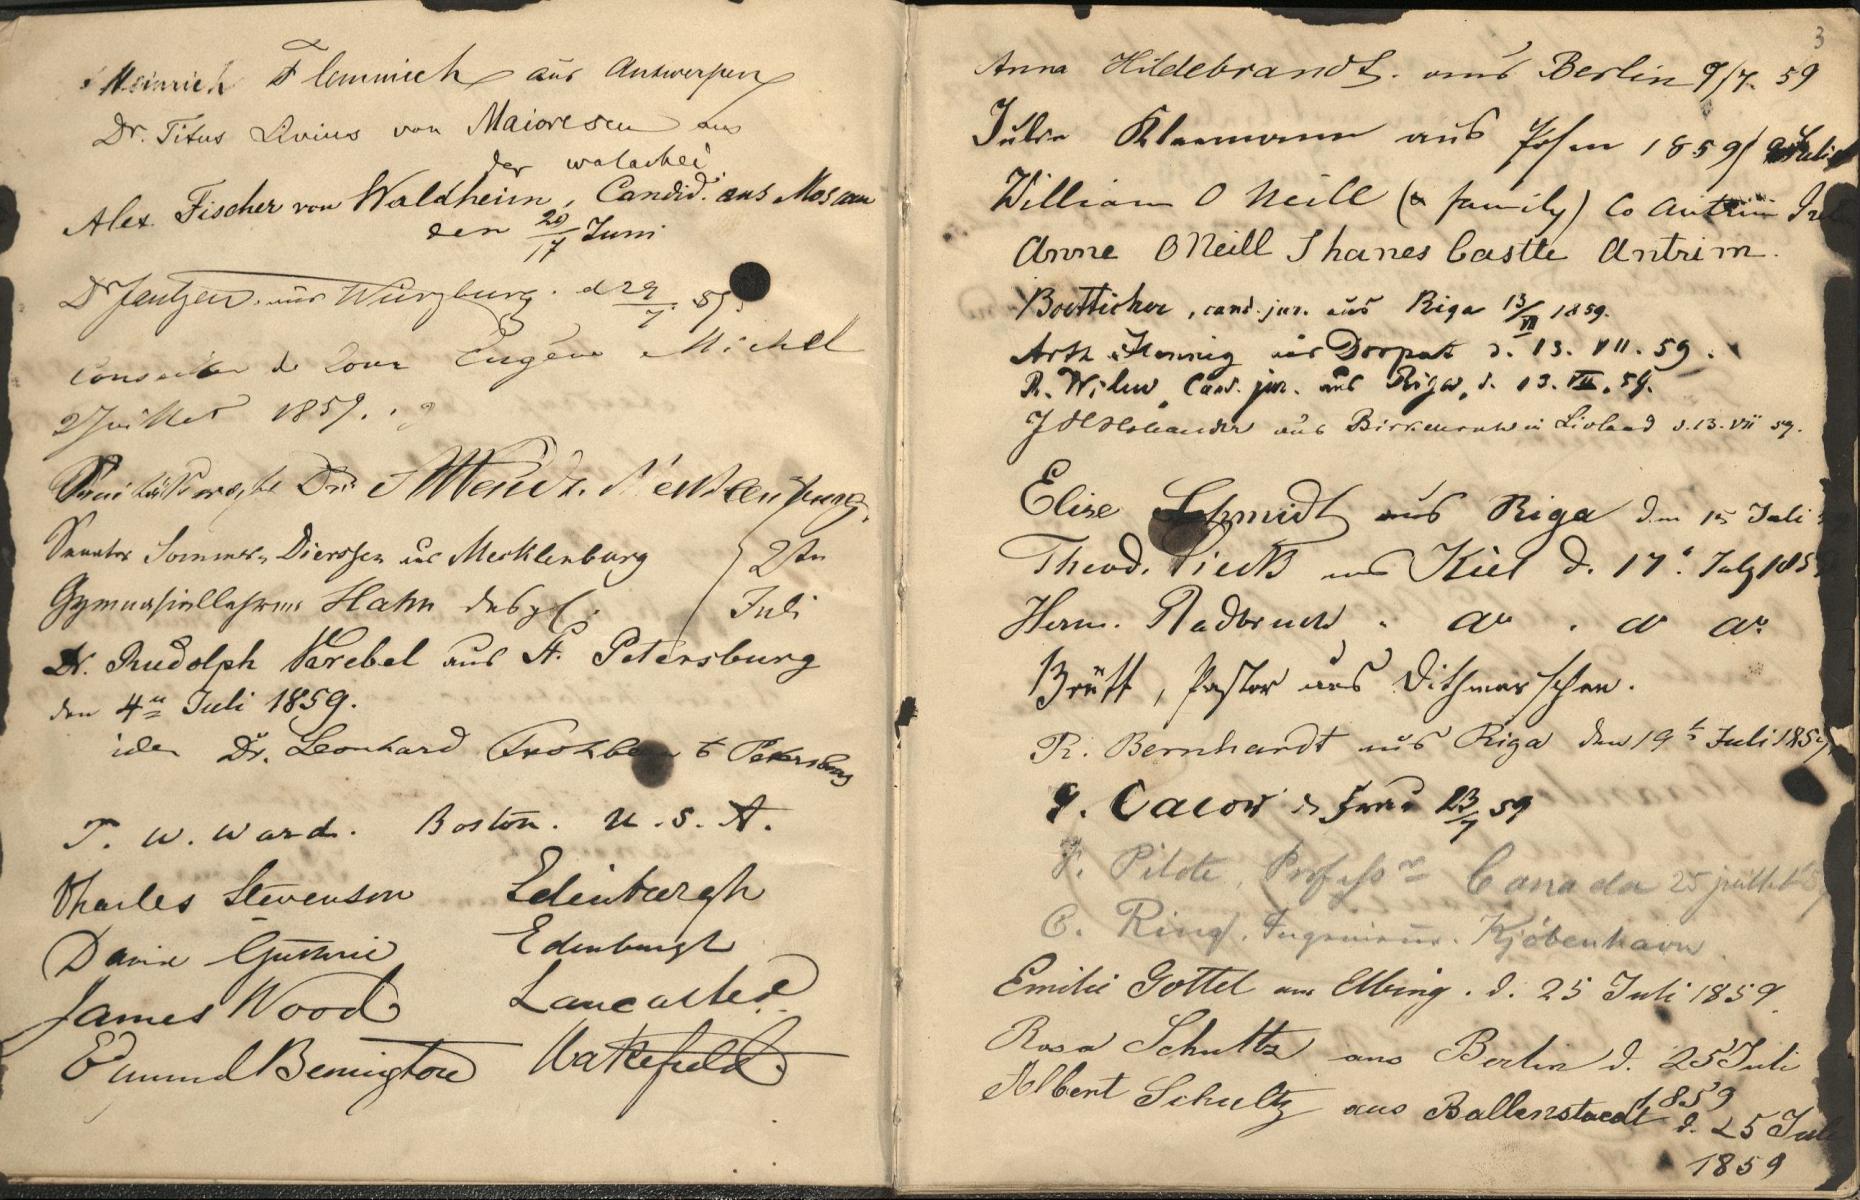 Heinrich Flemmich aus Antwerpen
Dr. Titus Livius von Maiorescu aus
der walachei
Alex. Fischer von Waldheim, Candid. aus Moscau
den 20/17 Juni
Dr Jantzen aus Würzburg. d 29/7. 59.
de Cour Eugène Michel
2 Juillet 1859.
Dr.
Senator Sommer Dierssen aus Mecklenburg
2ten
Gymnasiallehrer Hahn desgl.
Juli
Dr. Rudolph aus St. Petersburg
den 4ten Juli 1859.
Dr. Leonhard Petersburg
T. W. Ward. Boston. U.S.A.
Charles Stevenson Edinburgh
David Guthrie Edinburgh
James Wood Lancaster.
Edmund Bennington Wakefield.
3
Anna Hildebrandt. aus Berlin 9/7. 59
Julia aus Posen 1859/ Juli
William O Neill (& family) Co Antrim
Anne ONeill Shanes Castle Antrim.
Boetticher, cand. jur. aus Riga 13/VII 1859.
Arth. Hennig aus Dorpat d. 13. VII. 59.
R. Cand. jur. aus Riga, d. 13. VII. 59.
J H Hollander aus Birkenruh in Livland d. 13. VII 59.
Elise Schmidt aus Riga den 15 Juli
Theod. aus Kiel d. 17. July 185
Herm. Radbruch
Brütt, Pastor aus Dithmarschen.
R. Bernhardt aus Riga den 19t Juli 1859
23/7 59
F. Pilote, Professr Canada 25 juillet 59
C. Ring. Ingenieur. Kjöbenhavn
Emilie Gottel aus Elbing. d. 25 Juli 1859.
Rosa Schultz aus Berlin d. 25 Juli
1859
Albert Schultz aus Ballenstaedt d. 25 Juli
1859